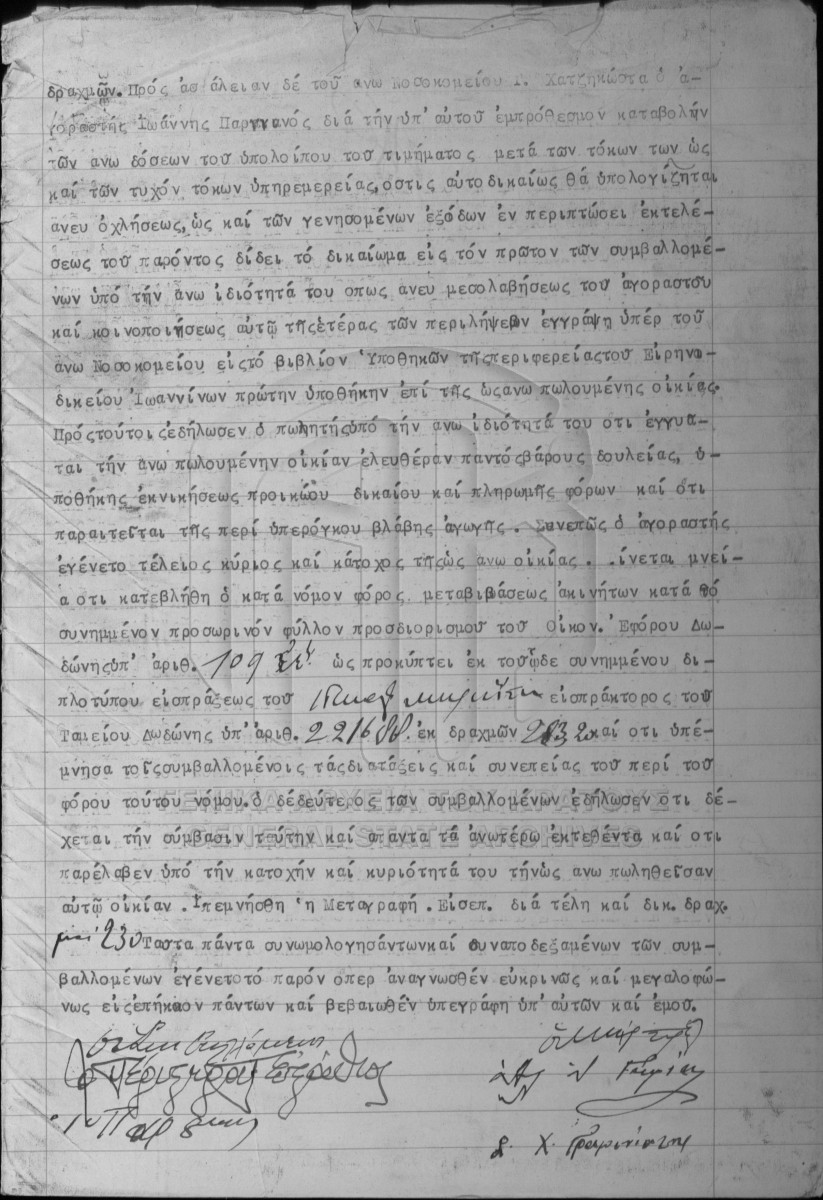 δραχμῶν. Πρός ἀσ άλειαν δέ τοῦ ανω Νοσοκομείου Γ. Χατζηκώστα ὁ ἀ-
γοραστής Ἰωάννης Παργγανός διά τήν ὑπ' αὐτοῦ ἐμπρόθεσμον καταβολήν
τῶν ανω δόσεων τοῦ ὑπολοίπου τοῦ τιμήματος μετά τῶν τόκων των ὡς
καί τῶν τυχόν τόκων ὑπηρεμερείας, ὁστις αὐτοδικαίως θά ὑπολογίζηται
ἀνευ ὀχλήσεως, ὡς καί τῶν γενησομένων ἐξόδων ἐν περιπτώσει ἐκτελέ-
σεως τοῦ παρόντος δίδει τό δικαίωμα εἰς τόν πρῶτον τῶν συμβαλλομέ-
νων ὑπό τήν ἀνω ἰδιότητά του οπως ἀνευ μεσολαβήσεως τοῦ ἀγοραστοῦ
καί κοινοποιήσεως αὐτῷ τῆςἑτέρας τῶν περιλήψεων ἐγγράψῃ ὑπέρ τοῦ
ἀνω Νοσοκομείου εἰςτό βιβλίον Ὑποθηκῶν τῆςπεριφερείαςτοῦ Εἰρηνο-
δικείου Ἰωαννίνων πρώτην ὑποθήκην ἐπί τῆς ὡςανω πωλουμένης οἰκίας.
Πρόςτούτοιςἐδήλωσεν ὁ πωλητήςὑπό τήν ανω ἰδιότητά του οτι ἐγγυᾶ-
ται τήν ἀνω πωλουμένην οἰκίαν ἐλευθέραν παντόςβάρους δουλείας, ὑ-
ποθήκης ἐκνικήσεως προικώου δικαίου καί πληρωμῆς φόρων καί ὁτι
παραιτεῖται τῆς περί ὑπερόγκου βλάβης ἀγωγῆς. Συνεπῶς ὁ ἀγοραστής
ἐγένετο τέλειος κύριος καί κάτοχος τῆςὡς ανω οἰκίας . .ίνεται μνεί-
α οτι κατεβλήθη ὁ κατά νόμον φόρος μεταβιβάσεως ἀκινήτων κατά τό
συνημμένον προσωρινόν φύλλον προσδιορισμοῦ τοῦ Οἰκον. Ἐφόρου Δω-
δώνηςὑπ' ἀριθ. 109 ὡς προκύπτει ἐκ τοῦ δε συνημμένου δι-
πλοτύπου εἰσπράξεως τοῦ εἰσπράκτορος τοῦ
Ταμείου Δωδώνης ὑπ' ἀριθ. ἐκ δραχμῶν καί οτι ὑπέ-
μνησα τοῖςσυμβαλλομένοις τάςδιατάξεις καί συνεπείας τοῦ περί τοῦ
φόρου τούτου νόμου. ὁ δέδεύτερος τῶν συμβαλλομένων ἐδήλωσεν οτι δέ-
χεται τήν σύμβασιν ταύτην καί ἀπαντα τά ἀνωτέρω ἐκτεθέντα καί οτι
παρέλαβεν ὑπό τήν κατοχήν καί κυριότητά του τήνὡς ανω πωληθεῖσαν
αὐτῷ οἰκίαν . Ὑπεμνήσθη 'η Μεταγραφή . Εἰσεπ. διά τέλη καί δικ. δραχ.
230 Ταῦτα πάντα συνωμολογησάντωνκαί συναποδεξαμένων τῶν συμ-
βαλλομένων ἐγένετοτό παρόν οπερ ἀναγνωσθέν εὐκρινῶς καί μεγαλοφώ-
νως εἰςἐπήκοον πάντων καί βεβαιωθέν ὑπεγράφη ὑπ' αὐτῶν καί ἐμοῦ.
ΓΕΝΙΚΑ ΑΡΧΕΙΑ ΤΟΥ ΚΡΑΤΟΥΣ
GENERAL STATE ARCHIVES